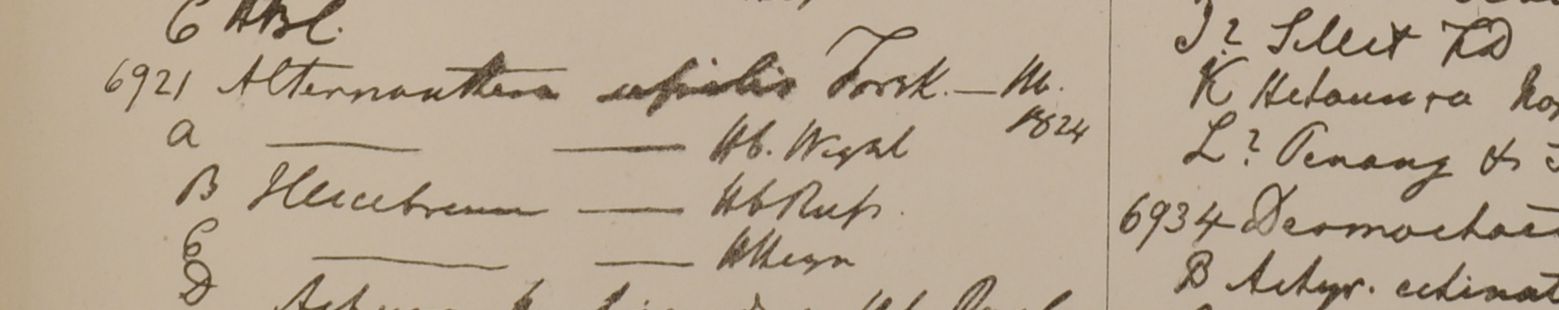 C HBC.
6921 Alternanthera sessilis Forsk. — Hb.
1824
a — — Hb. Wight
B Illecebrum — Hb Russ.
C — — HHeyn
D
J? Sillet FD
K Hetaunra
L? Penang &
6934 Desmochaet
B Achyr. echinat